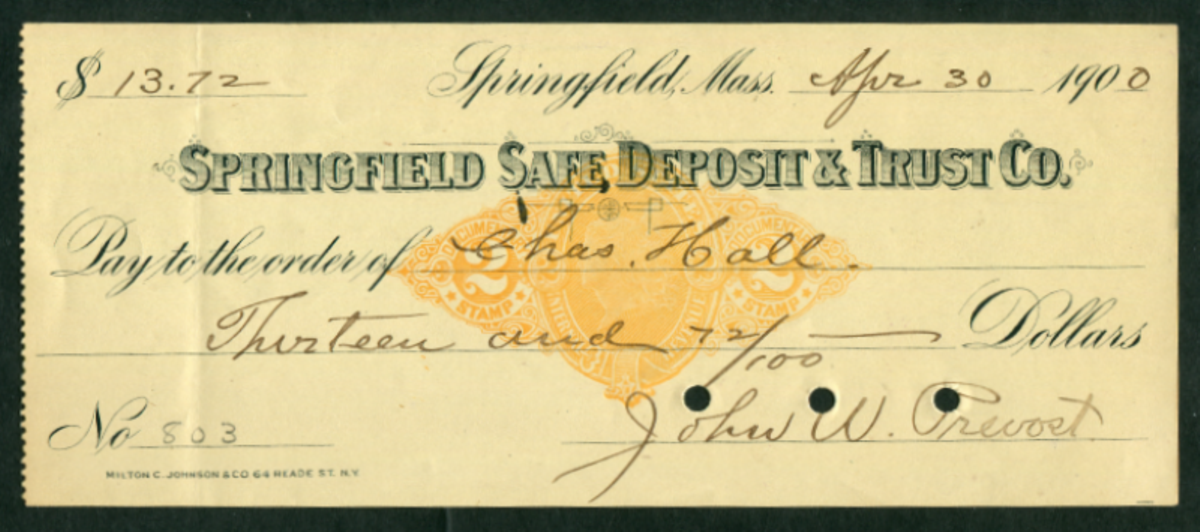 $ 13.72 Springfield, Mass. Apr 30 1900
SPRINGFIELD SAFE, DEPOSIT & TRUST CO.
Pay to the order of Chas. Hall.
2 STAMP 2 STAMP
Thirteen and 72/100 Dollars
John W. Prevost
No 803
MILTON C. JOHNSON & CO 64 READE ST. N.Y.